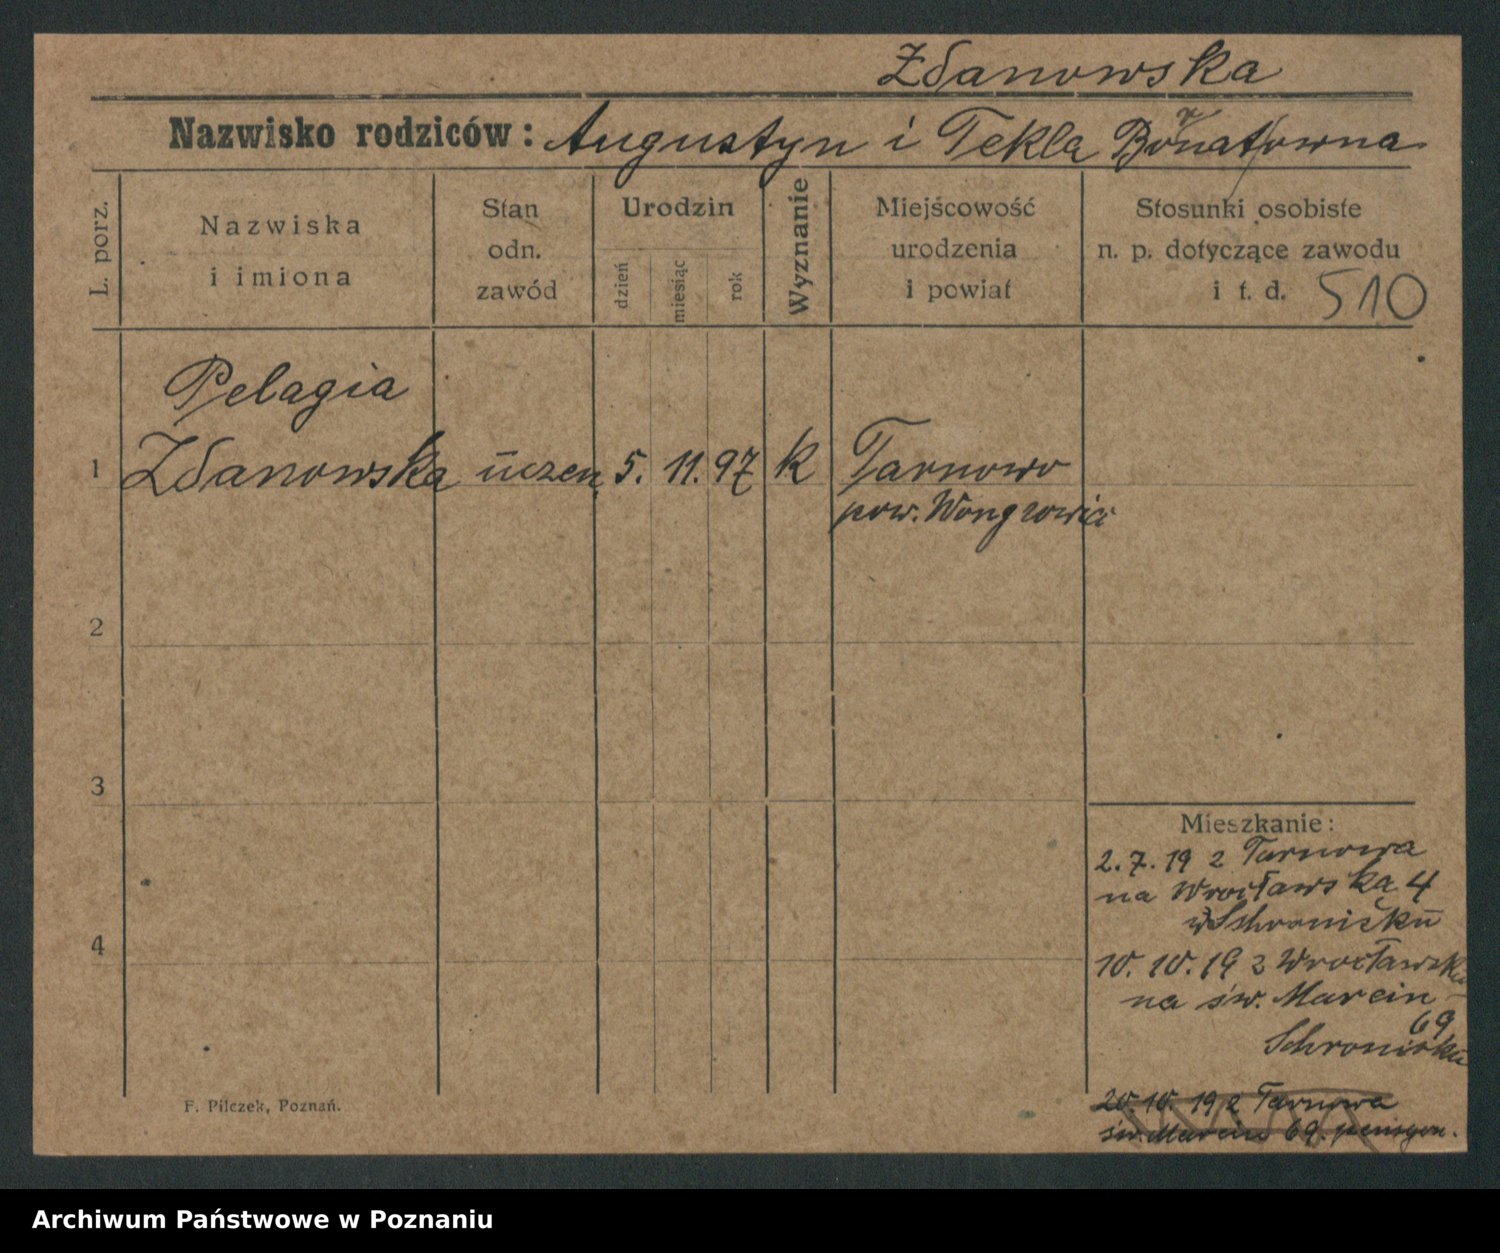 Zdanowska
Nazwisko rodziców: Augustyn i Tekla
L. porz.
Nazwiska
i imiona
Stan
odn.
zawód
Urodzin
dzień
miesiąc
rok
Wyznanie
Miejscowość
urodzenia
i powiat
Stosunki osobiste
n. p. dotyczące zawodu
i t. d. 510
Pelagia
1 Zdanowska uczen. 5. 11. 97 k Tarnowo
pow.
2
3
4
Mieszkanie:
2. 7. 19 z Tarnowa
na Wrocławska 4
w Schronisku
10. 10. 19 z Wrocławska
na św. Marcin
69
Schronisku
20. 10. 19 z Tarnowa
św. Marcin 69.
F. Pilczek, Poznań.
Archiwum Państwowe w Poznaniu